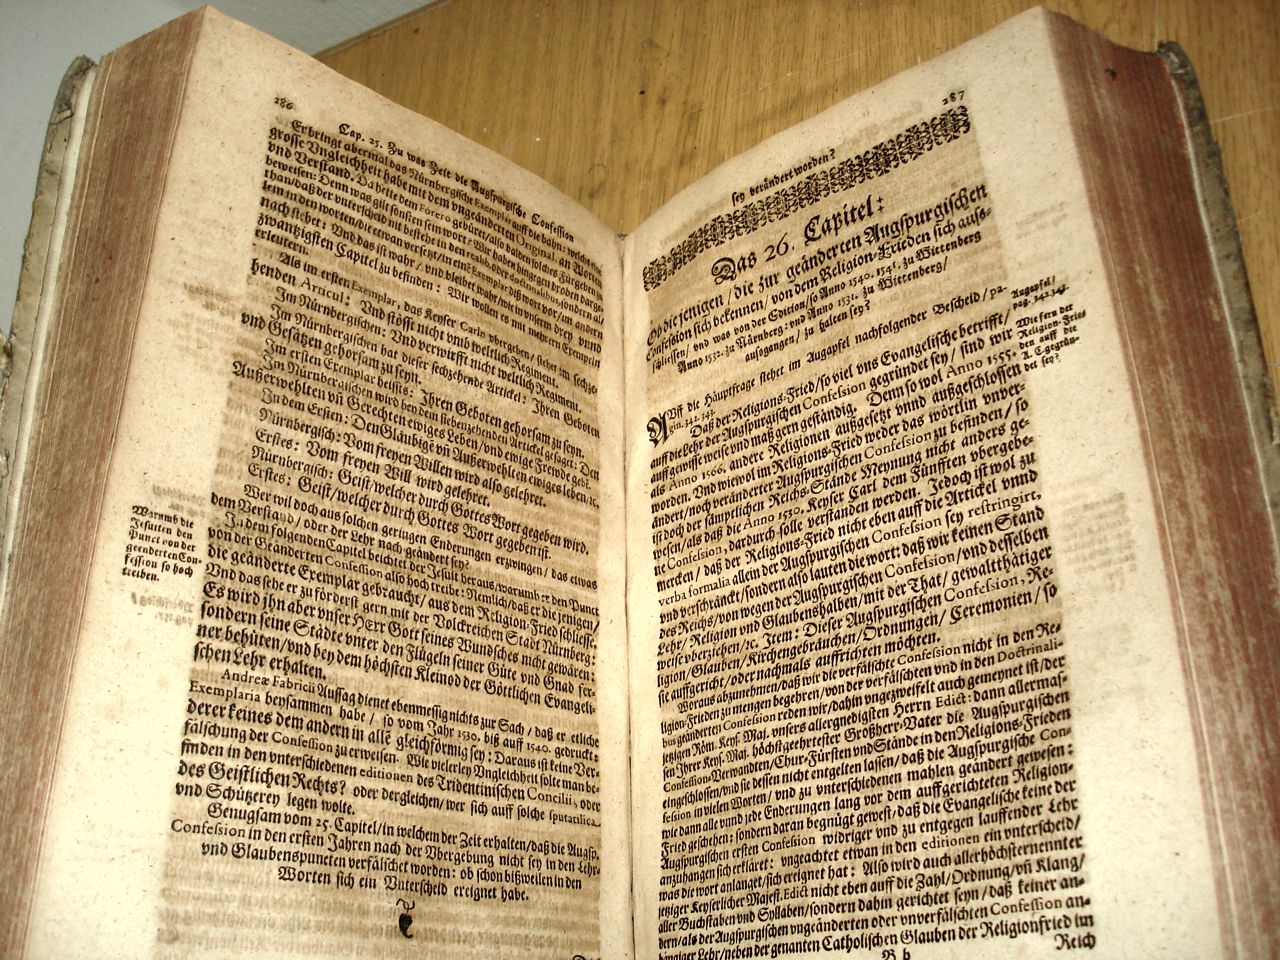 286
Cap. 25. Zu was Zeit die Augspurgische Confession
Erbringt abermal das Nürnbergische Exemplar auff die bahn, welches
grosse Vngleichheit habe mit dem vngeänderten Original, an Worten
vnd Verstand. Da hette dem Forero gebüret/
beweisen: Denn was gilt sonsten sein wort?
nach stehet? Vnd das ist wahr/vnd bleibet wahr/wie in vnserm drey vnnd
zwantzigsten Capitel zu befinden: Wir wollen es mit mehrern Exempeln
erleutern.
Als im ersten Exemplar, das Keyser Carln vbergeben/stehet im sechze-
henden Articul: Vnd stösst nicht vmb weltlich Regiment.
Im Nürnbergischen: Vnd verwirfft nicht weltlich Regiment.
Im Nürnbergischen hat dieser sechzehende Artickel: Ihren Geboten
vnd Gesätzen gehorsam zu seyn.
Im ersten Exemplar heissts: Ihren Geboten gehorsam zu seyn.
Im Nürnbergischen wird bey dem siebenzehenden Artickel gesaget: Den
Außerwehlten vñ Gerechten ewiges Leben/vnd ewige Frewde geben.
In dem Ersten: Den Gläubigē vñ Außerwehlten ewiges leben/ꝛc.
Nürnbergisch: Vom freyen Willen wird also gelehret.
Erstes: Vom freyen Will wird gelehret.
Nürnbergisch: Geist/welcher durch Gottes Wort gegeben wird.
Erstes: Geist/welcher durch Gottes Wort gegeben ist.
Wer wil doch aus solchen geringen Enderungen erzwingen/das etwas
dem Verstand/oder der Lehr nach geändert sey?
Warumb die
Jesuiten den
Punct von der
geenderten Con-
fession so hoch
treiben.
In dem folgenden Capitel beichtet der Jesuit heraus/warumb er den Punct
von der Geänderten Confession also hoch treibe: Nemlich/daß er die jenigen/
die geänderte Exemplar gebraucht/aus dem Religion-Fried schliesse.
Vnd das sehe er zu förderst gern mit der Volckreichen Stadt Nürnberg:
Es wird jhn aber vnser Herr Gott seines Wundsches nicht gewären:
sondern seine Städte vnter den Flügeln seiner Güte vnd Gnad fer-
ner behüten/vnd bey dem höchsten Kleinod der Göttlichen Evangeli-
schen Lehr erhalten.
Andreæ Fabricii Aussag dienet ebenmessig nichts zur Sach/daß er etliche
Exemplaria beysammen habe/so vom Jahr 1530. biß auff 1540. gedruckt:
derer keines dem andern in allē gleichförmig sey: Daraus ist keine Ver-
fälschung der Confession zu erweisen. Wie vielerley Vngleichheit solte man be-
finden in den vnterschiedenen editionen des Tridentinischen Concilii, oder
des Geistlichen Rechts? oder dergleichen/wer sich auff solche
vnd Schützerey legen wolte.
Genugsam vom 25. Capitel/in welchem der Zeit erhalten/daß die Augsp.
Confession in den ersten Jahren nach der Vbergebung nicht sey in den Lehr-
vnd Glaubenspuncten verfälschet worden: ob schon bißweilen in den
Worten sich ein Vnterscheid ereignet habe.
287
sey verändert worden?
Das 26. Capitel:
Ob die jenigen/die zur geänderten Augspurgischen
Confession sich bekennen/von dem Religion-Frieden sich aus-
schliessen/vnd was von der Edition/so Anno 1540. 1541. zu Wittenberg
Anno 1532. zu Nürnberg: vnd Anno 1531. zu Wittenberg/
ausgangen/zu halten sey?
Auff die Hauptfrage stehet im Augapfel nachfolgender Bescheid/pa-
gin. 342. 343.
Augapfel/
pag. 342. 343.
Wie fern der
Religion-Fried
den auff die
A. C. gegrün-
det sey?
Daß der Religions-Fried/so viel vns Evangelische betrifft/
auff die Lehr der Augspurgischen Confession gegründet sey/sind wir
auff gewisse weise vnd maß gern geständig. Denn so wol Anno 1555.
als Anno 1566. andere Religionen außgesetzt vnnd außgeschlossen
worden. Vnd wiewol im Religions-Fried weder das wörtlin vnver-
ändert/noch veränderter Augspurgischen Confession zu befinden/so
ist doch der sämptlichen Reichs-Stände Meynung nicht anders ge-
wesen/als daß die Anno 1530. Keyser Carl dem Fünfften vbergebe-
ne Confession, dardurch solle verstanden werden. Jedoch ist wol zu
mercken/daß der Religions-Fried nicht eben auff die Artickel vnnd
verba formalia allein der Augspurgischen Confession sey restringirt,
vnd verschränckt/sondern also lauten die wort: daß wir keinen Stand
des Reichs/von wegen der Augspurgischen Confession/vnd desselben
Lehr/Religion vnd Glaubenshalben/mit der That/gewalthätiger
weise vberziehen/ꝛc. Item: Dieser Augspurgischen Confession, Re-
ligion/Glauben/Kirchengebräuchen/Ordnungen/Ceremonien/so
sie auffgericht/oder nachmals auffrichten möchten.
Woraus abzunehmen/daß wir die verfälschte Confession nicht in den Re-
ligion-Frieden zu mengen begehren/von der verfälschten Confession in den Doctrinali-
bus geänderten Confession reden wir/dahin vngezweifelt auch gemeynet ist/der
jetzigen Röm. Keys. Maj. vnsers allergnedigsten Herrn Edict: dann allermas-
sen Ihrer Keys. Maj. höchstgeehrtester Großherr-Vater die Augspurgischen
Confession-Verwandten/Chur-Fürsten vnd Stände in den Religions-Frieden
eingeschlossen/vnd sie dessen nicht entgelten lassen/daß die Augspurgische Con-
fession in vielen Worten/vnd zu vnterschiedenen mahlen geändert gewesen:
wie dann alle vnd jede Enderungen lang vor dem auffgerichteten Religion-
Fried geschehen: sondern daran begnügt gewest/daß die Evangelische keine der
Augspurgischen ersten Confession widriger vnd zu entgegen lauffender Lehr
anzuhangen sich erkläret: vngeachtet etwan in den editionen ein vnterscheid/
was die wort anlanget/sich ereignet hat: Also wird auch allerhöchsternennter
jetziger Keyserlicher Majest. Edict nicht eben auff die Zahl/Ordnung/vñ Klang/
aller Buchstaben vnd Syllaben/sondern dahin gerichtet seyn/daß keiner an-
dern/als der Augspurgischen vngeänderten oder vnverfälschten Confession an-
hängiger Lehr/neben der genanten Catholischen Glauben der Religionfried im
B b
Reich